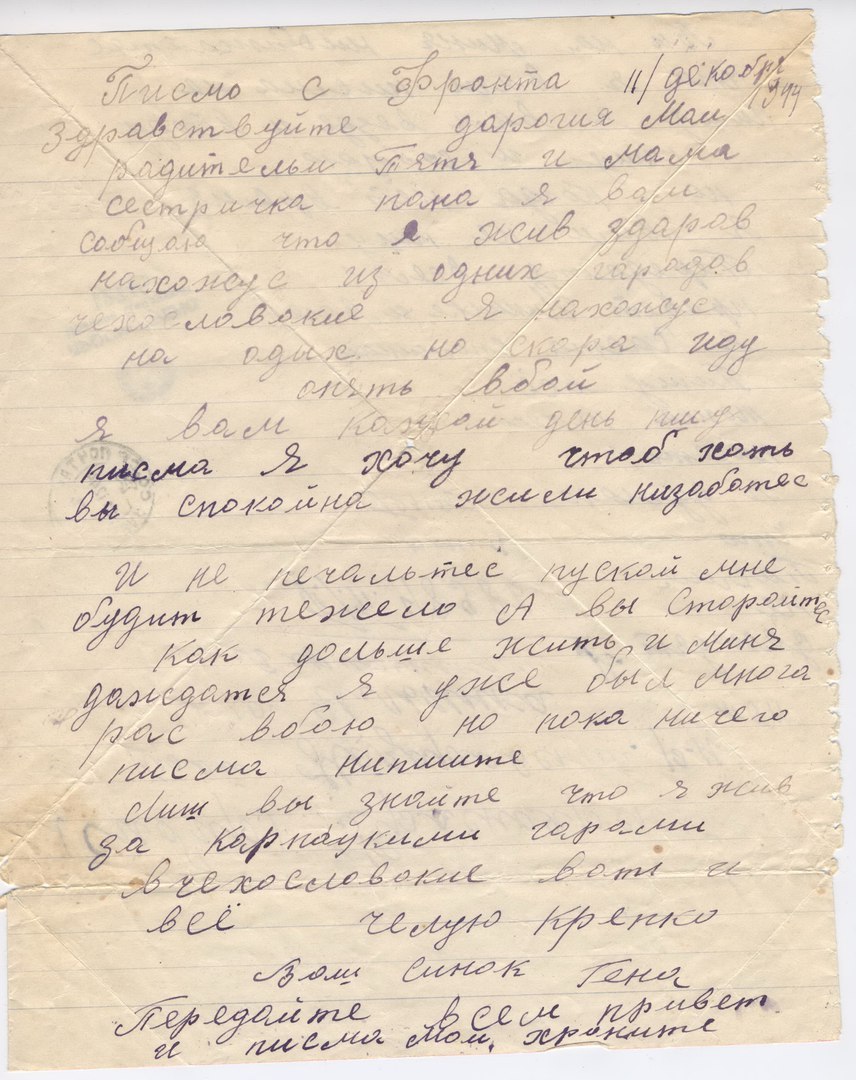 Писмо с Фронта 11/декобря
1944
Здравствуйте дарогия Маи
радительи Тятя и мама
сестричка пана я вам
сообщаю что я жив здарав
нахожус из одних гарадов
чехословокие Я нахожус
на одых но скора иду
опять вбой
я вам кождой день пишу
писма Я хочу чтоб хоть
вы спокойна жили низаботес
И не печальтес пуской мне
будит тежело А вы Сторойтес
как дольше жить и Миня
даждатся я уже был Многа
рас вбою но пока ничего
писма нипишите
Лиш вы знайте что я жив
за карпаукими гарами
вчехословокие воть и
всё челую крепко
Ваш синок Гена
Передайте всем привет
и писма Мои храните